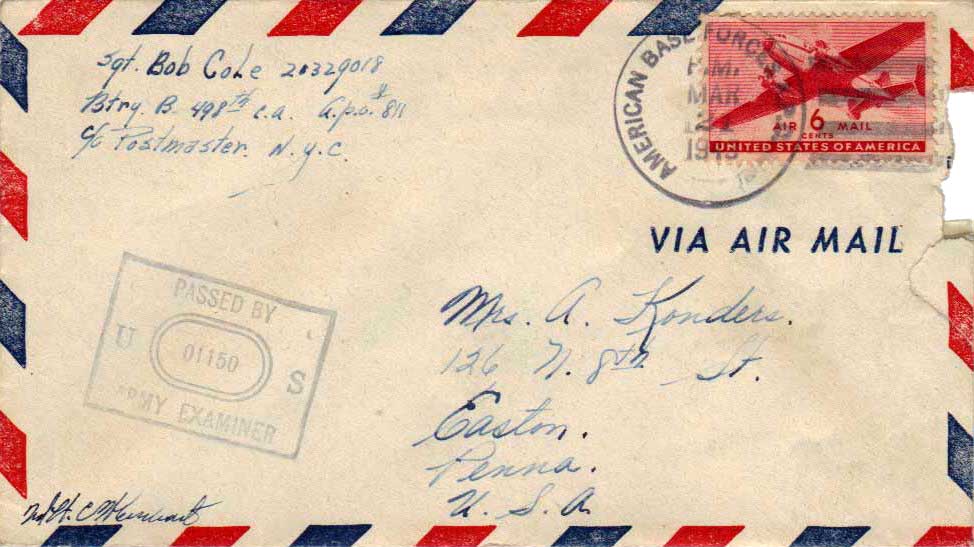 Sgt. Bob Cole 20329018
Btry. B. 498th C.A. A.P.O. # 811
c/o Postmaster. N.Y.C.
AMERICAN BASE FORCES
P.M.
MAR
AIR 6 MAIL
CENTS
UNITED STATES OF AMERICA
VIA AIR MAIL
PASSED BY
U 01150 S
ARMY EXAMINER
Mrs. A. Konders.
126 N. 8th St.
Easton.
Penna.
U.S.A
2nd Lt.